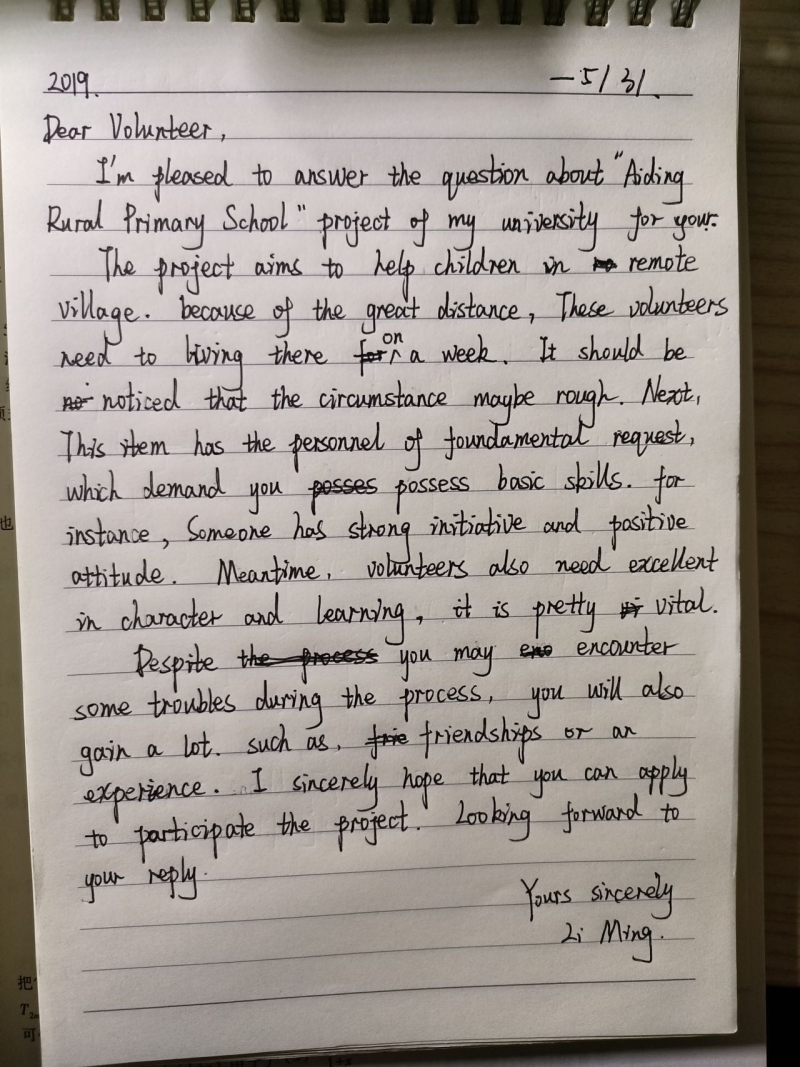 2019.
—5/31.
Dear Volunteer,
I'm pleased to answer the question about "Aiding
Rural Primary School" project of my university for your.
The project aims to help children in remote
village. because of the great distance, These volunteers
need to living there on a week. It should be
noticed that the circumstance maybe rough. Next,
This item has the personnel of foundamental request,
which demand you possess basic skills. for
instance, Someone has strong initiative and positive
attitude. Meantime, volunteers also need excellent
in character and learning, it is pretty vital.
Despite you may encounter
some troubles during the process, you will also
gain a lot. such as, friendships or an
experience. I sincerely hope that you can apply
to participate the project. Looking forward to
your reply.
Yours sincerely
Li Ming.
把
T
可
也